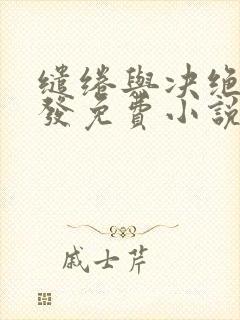 缱绻與决绝
發免費小說
戚士芹